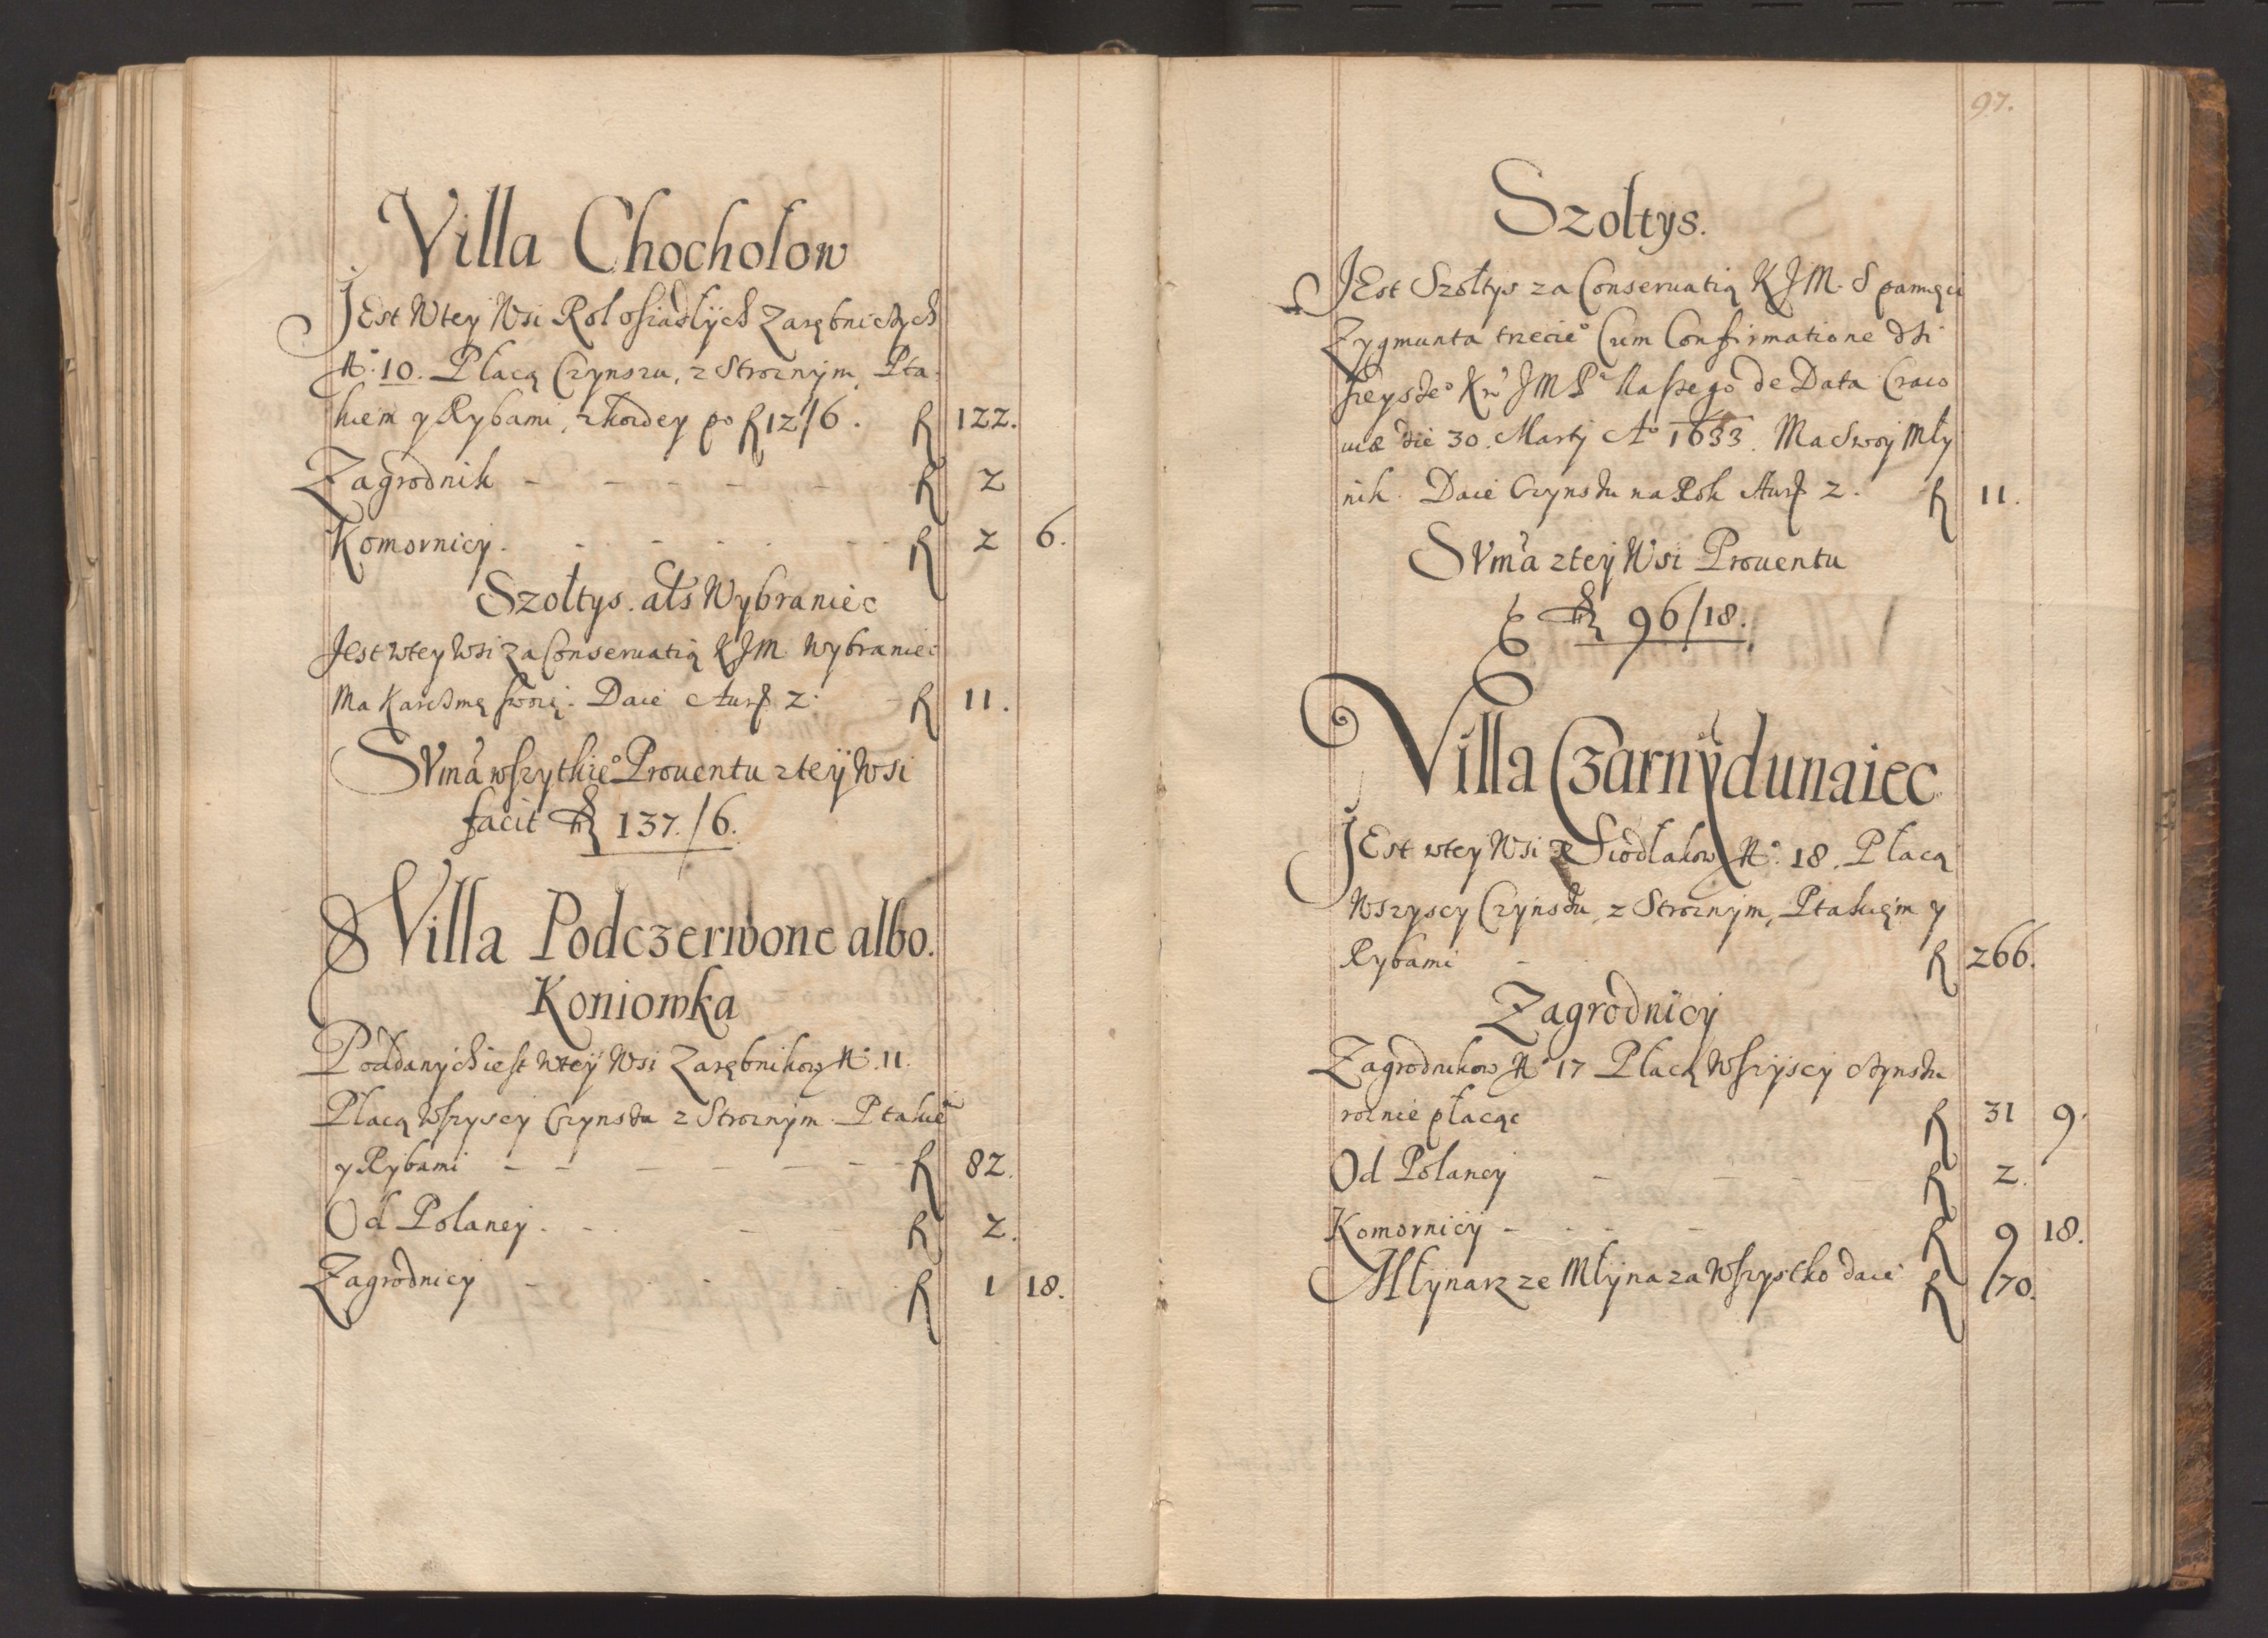 Villa Chochołow
JEst Wtey Wsi Rol osiadłych Zarębniczych
N° 10. Płacą Czynszu, z Stroznym, Pta-
kiem y Rybami, z kozdey po f 12/6. f 122.
Zagrodnik - - - - - f 2
Komornicy. - - - - - f 2 6.
Szołtys. als Wybraniec
Jest wtey wsi za Conseruatią KJM Wybraniec
Ma Karczmę swoię. Daie Aur 2. - f 11.
SVma wszytkie° Prouentu z tey Wsi
facit f 137./6.
Villa Podczerwone albo.
Koniowka
Poddanych iest wtey Wsi Zarębnikow N° 11.
Płacą wszyscy Czynszu z Stroznym Ptakie
y Rybami - - - - - - f 82.
Od Polaney. - - - f 2.
Zagrodnicy - - - - f 1 18.
97.
Szołtys.
JEst Szołtys za Conseruatią KJM. S pamęci
Zygmunta trzecie° Cum Confirmatione dzi
sieysze° Kr JMP Naszego de Data Craco
uiæ die 30. Martij A° 1633. Ma swoy Mły
nik. Daie Czynszu na Rok Aur 2. f 11.
SVma z tey Wsi Prouentu
f 96/18.
Villa Czarnydunaiec
JEst wtey Wsi Siodłakow N° 18. Płacą
Wszyscy Czynszu, z Stroznym, Ptakięm y
Rybami - - f 266.
Zagrodnicy
Zagrodnikow N° 17 Płacą Wszyscy czynszu
roznie płacąc f 31 9.
Od Polaney - - - - f 2.
Komornicy - - - - f 9 18.
Młynarz ze Młyna za Wszystko daie f 70.